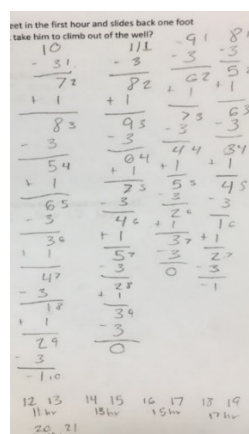 eet in the first hour and slides back one foot
take him to climb out of the well?
10
- 3 1
7 2
+ 1
8 3
- 3
5 4
+ 1
6 5
- 3
3 6
+ 1
4 7
- 3
1 8
+ 1
2 9
- 3
-1 10
11 1
- 3
8 2
+ 1
9 3
- 3
6 4
+ 1
7 5
- 3
4 6
+ 1
5 7
- 3
2 8
+ 1
3 9
- 3
0
9 1
- 3
6 2
+ 1
7 3
- 3
4 4
+ 1
5 5
- 3
2 6
+ 1
3 7
- 3
0
8
- 3
5 2
+ 1
6 3
- 3
3 4
+ 1
4 5
- 3
1 6
+ 1
2 7
- 3
-1
12 13 14 15 16 17 18 19
11 hr 13 hr 15 hr 17 hr
20 21